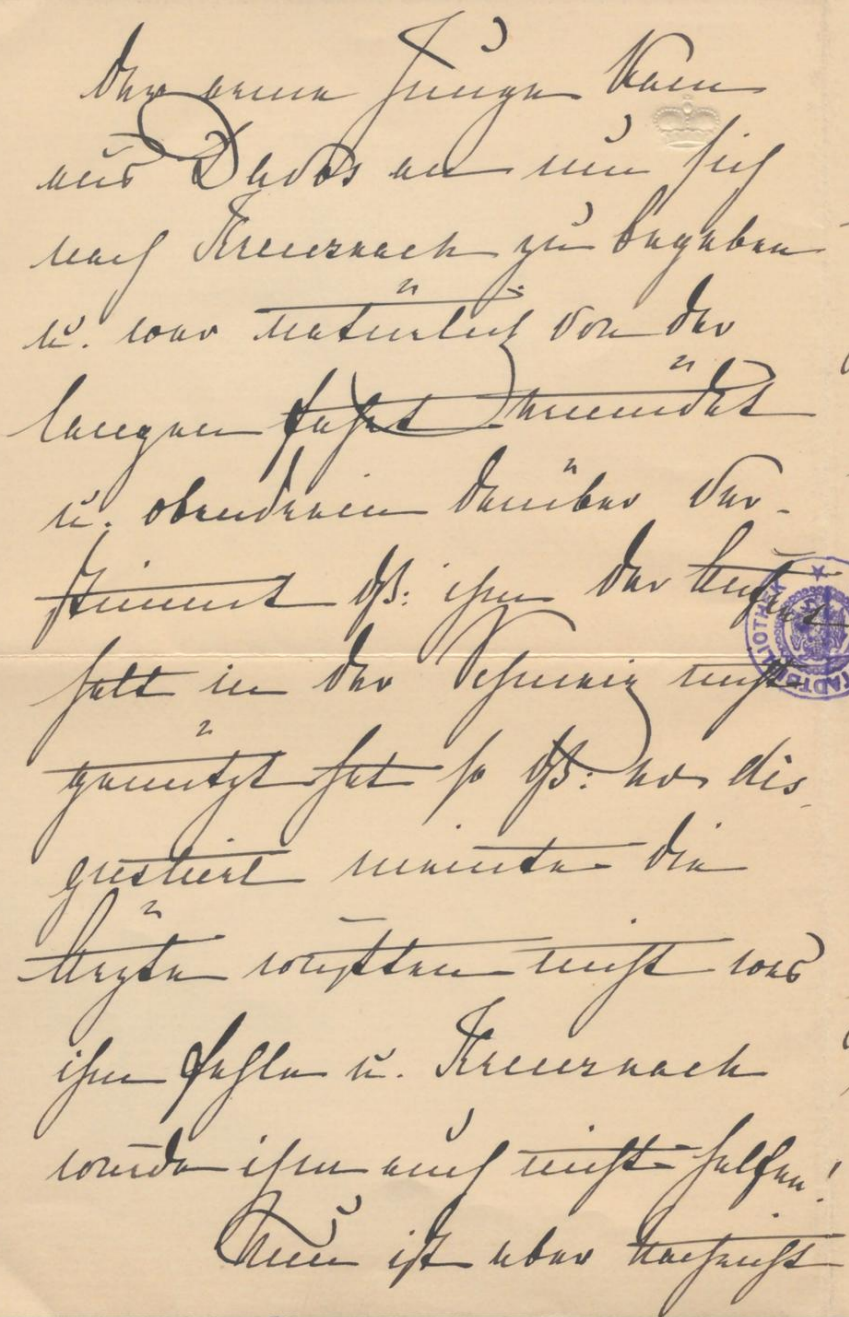 Der arme Junge kam
aus Davos an um sich
nach Kreuznach zu begeben
u. war natürlich von der
langen Fahrt ermüdet
u. obendrein darüber ver-
stimmt dß: ihm der Aufent
halt in der Schweiz nicht
genützt hat so dß: er dis-
gustiert meinte die
Ärzte wüßten nicht was
ihm fehle u. Kreuznach
würde ihm auch nicht helfen!
Nun ist aber Nachricht
STADTBIBLIOTHEK